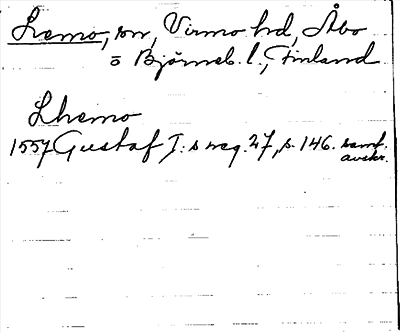 Lemo, sn, Virmo hd, Åbo
o Björneb. l., Finland
Lhemo
1557 Gustaf I:s reg. 27, s. 146. samt.
avskr.